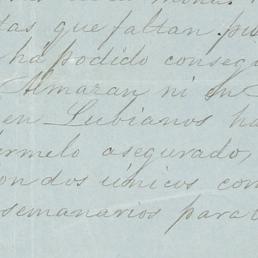 tas que faltan. pu
ha podido conseg
Almazan ni en
en Lubianos ha
érmelo asegurado,
on dos unicos con
semanarios para